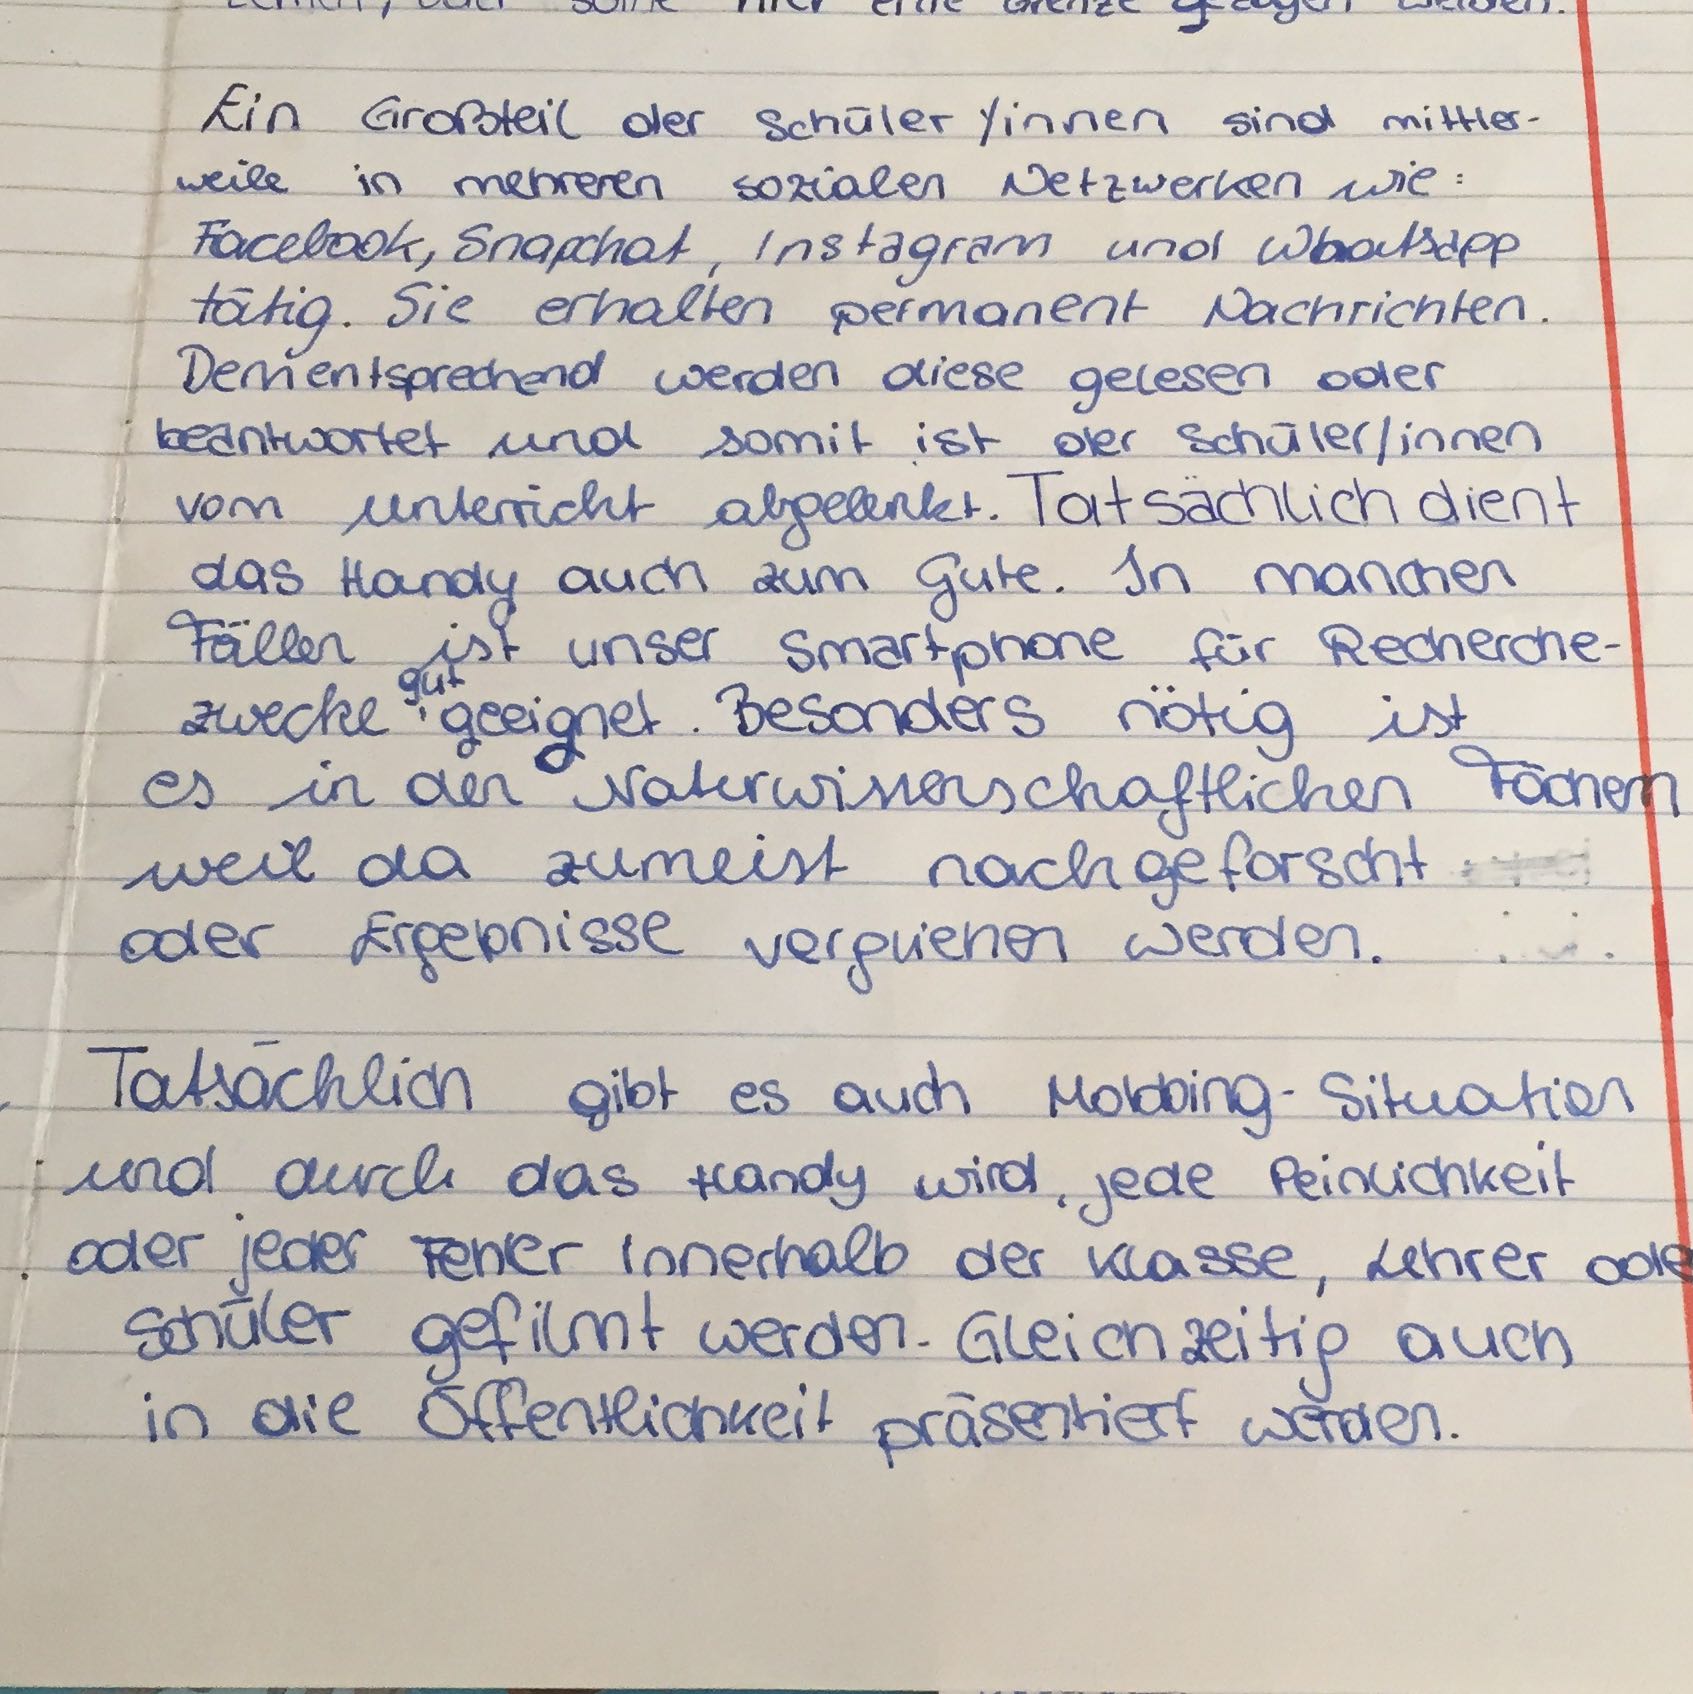 eine Grenze gezogen werden.
Ein Großteil der Schüler/innen sind mittler-
weile in mehreren sozialen Netzwerken wie:
Facebook, Snapchat, Instagram und Whatsapp
tätig. Sie erhalten permanent Nachrichten.
Dementsprechend werden diese gelesen oder
beantwortet und somit ist der Schüler/innen
vom unterricht abgelenkt. Tatsächlich dient
das Handy auch zum Gute. In manchen
Fällen ist unser Smartphone für Recherche-
zwecke gut geeignet. Besonders nötig ist
es in den Naturwissenschaftlichen Fächern
weil da zumeist nachgeforscht
oder Ergebnisse verglichen werden.
Tatsächlich gibt es auch Mobbing-Situation
und durch das Handy wird, jede Peinlichkeit
oder jeder Fehler Innerhalb der Klasse, Lehrer ode
Schüler gefilmt werden. Gleichzeitig auch
in die Öffentlichkeit präsentiert werden.